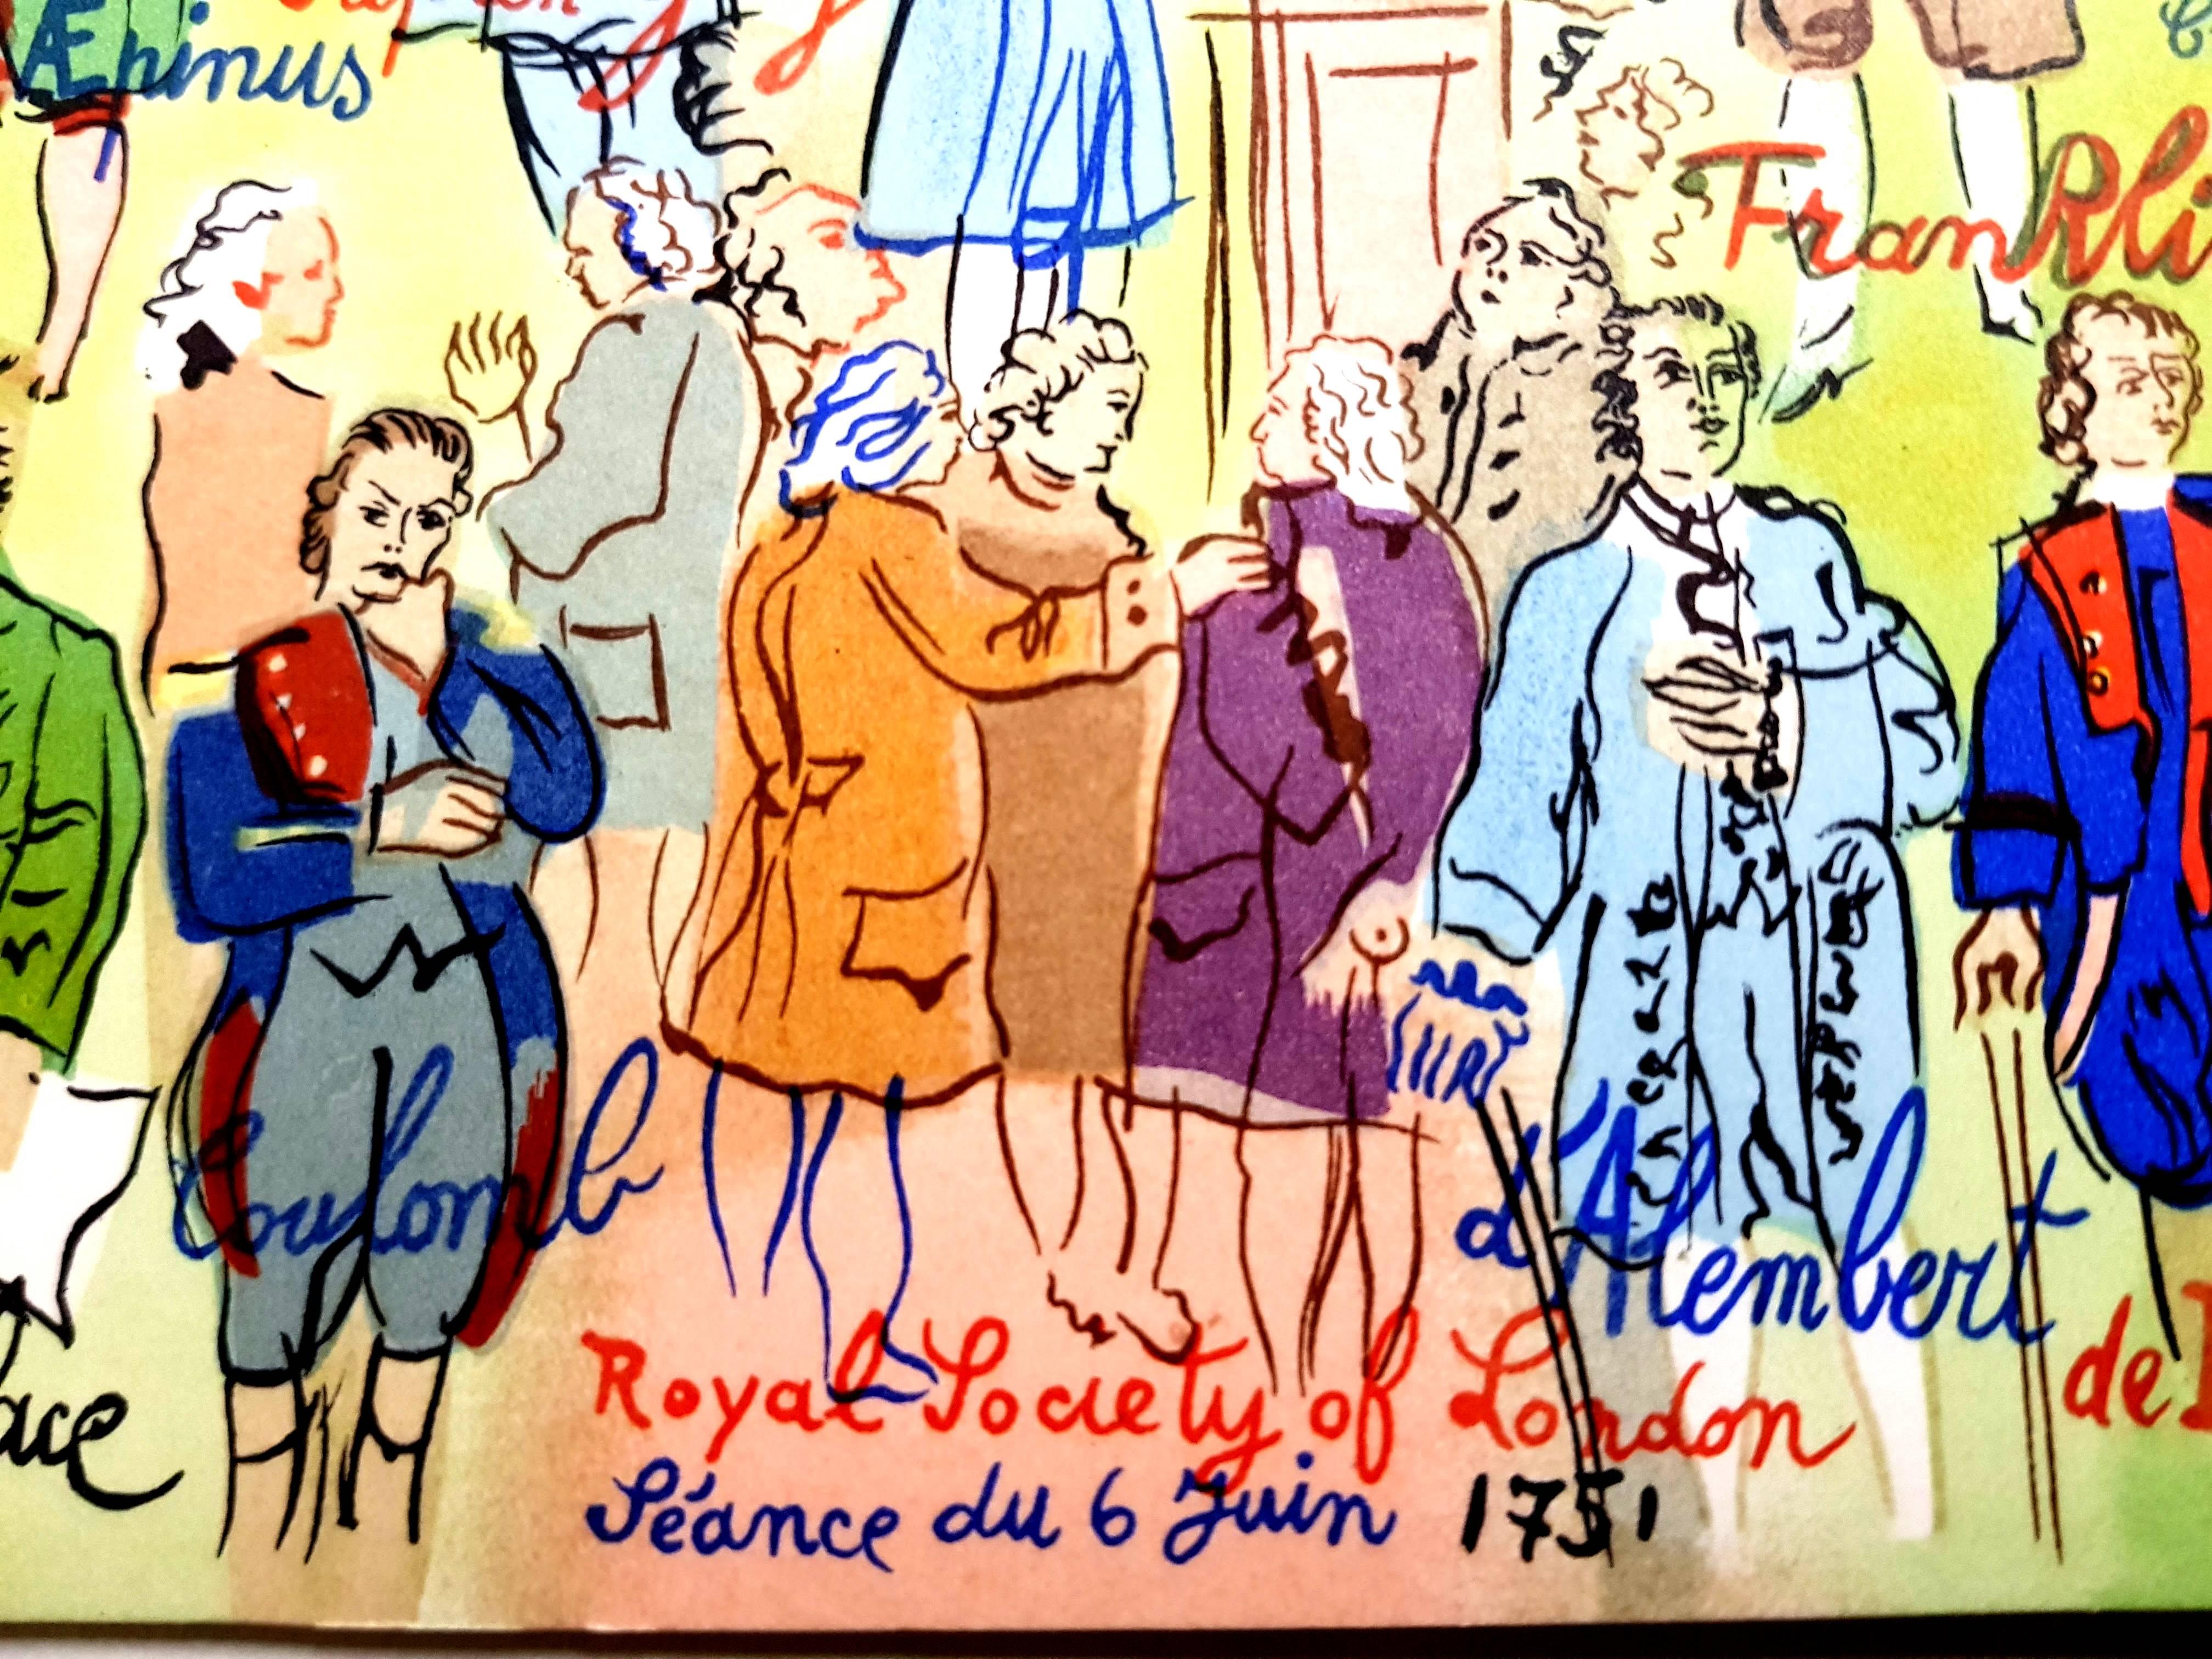 Æpinus
Frankli
Coulomb
d'Alembert
ace
de
Royal Society of London
Séance du 6 Juin 1751